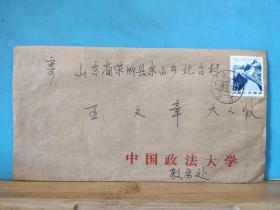 寄 山东省荣城县东山乡北台村
王文章 大人收
中国政法大学
教务处